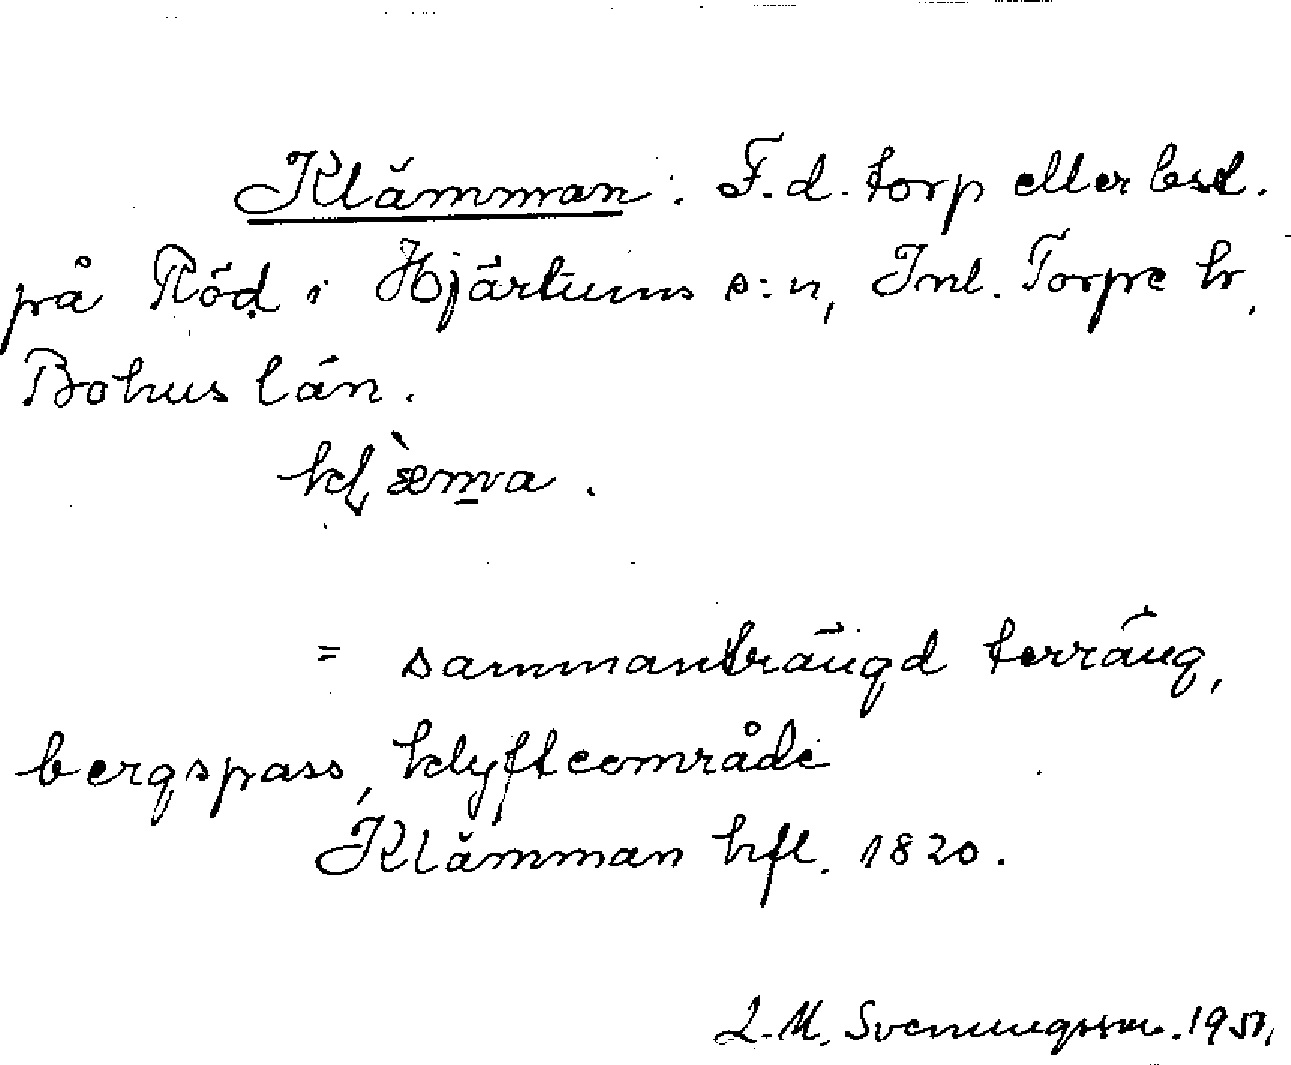 Klämman: F.d. torp eller bst.
på Röd i Hjärtums s:n, Inl. Torpe hr,
Bohus län.
klæma.
= sammanträngd terräng,
bergspass, klyfteområde
Klämman hfl. 1820.
L.M. Svenungsson. 1951.